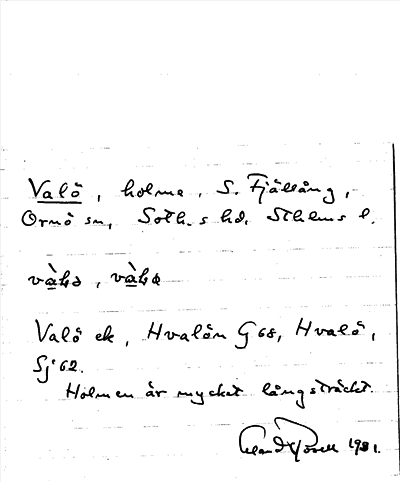 Valö, holme, S. Fjällång,
Ornö sn, Soth.s hd, Sthlms l.
Valö ek, Hvalön G 68, Hvalö,
Sj 62.
Holmen är mycket långsträckt.
1981.